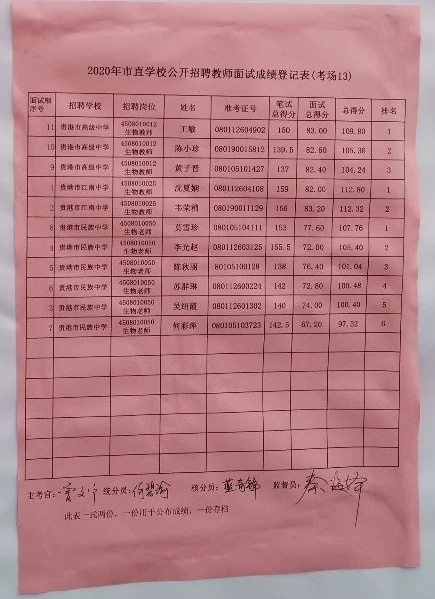 2020年市直学校公开招聘教师面试成绩登记表(考场13)
面试顺序号 招聘学校 招聘岗位 姓名 准考证号 笔试总得分 面试总得分 总得分 排名
11 贵港市高级中学 4508010012生物教师 王敏 080112604902 150 83.00 109.80 1
10 贵港市高级中学 4508010012生物教师 陈小珍 080190015812 139.5 82.60 105.36 2
9 贵港市高级中学 4508010012生物教师 黄子晋 080105101427 137 82.40 104.24 3
1 贵港市江南中学 4508010025生物教师 沈夏娴 080112604108 159 82.00 112.80 1
2 贵港市江南中学 4508010025生物教师 韦荣梢 080190011129 156 83.20 112.32 2
8 贵港市民族中学 4508010050生物老师 莫雪珍 080105104111 153 77.60 107.76 1
4 贵港市民族中学 4508010050生物老师 李光赵 080112603125 155.5 72.00 105.40 2
5 贵港市民族中学 4508010050生物老师 陈秋丽 80105100128 138 76.40 101.04 3
6 贵港市民族中学 4508010050生物老师 苏群琳 080112600224 142 72.80 100.48 4
3 贵港市民族中学 4508010050生物老师 吴绍霞 080112601302 140 74.00 100.40 5
7 贵港市民族中学 4508010050生物老师 何彩萍 080105103723 142.5 67.20 97.32 6
主考官: 统分员: 核分员: 监督员:
此表一式两份，一份用于公布成绩，一份存档